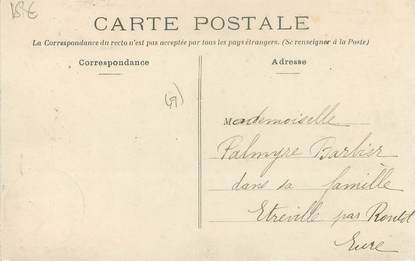 15€
CARTE POSTALE
La Correspondance du recto n'est pas acceptée par tous les pays étrangers. (Se renseigner à la Poste)
Correspondance
Adresse
Mademoiselle
Palmyre Barbier
dans sa famille
Etreville par Routot
Eure